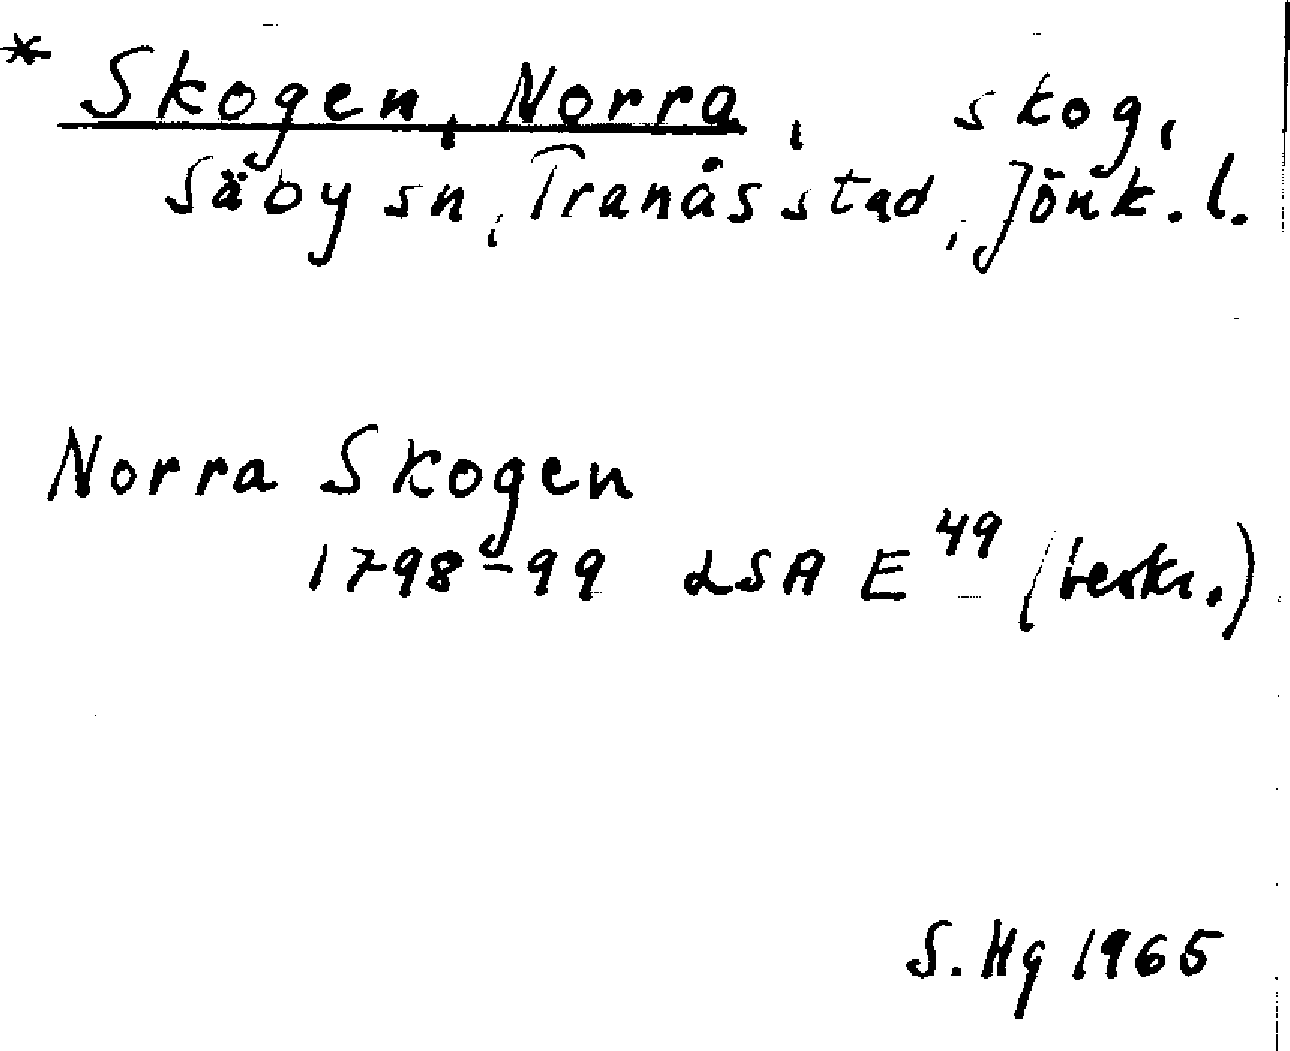 * Skogen, Norra, skog,
Säby sn, Tranås stad, Jönk. l.
Norra Skogen
1798-99 LSA E 49 (beskr.)
S. Hg 1965